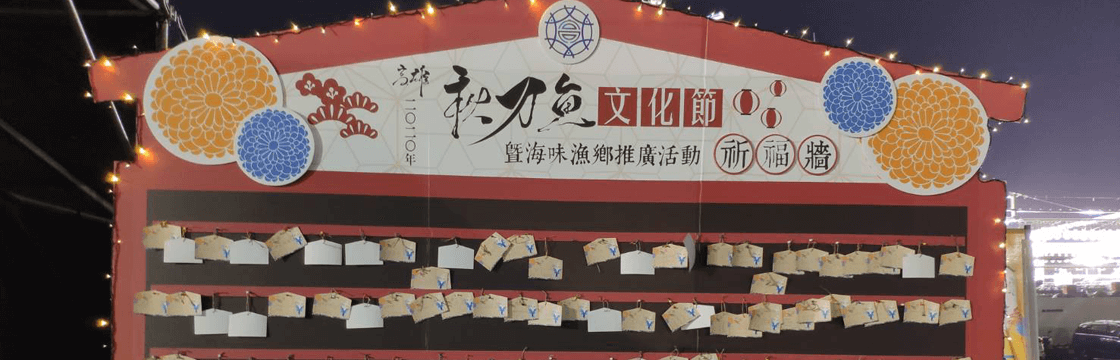 高雄
二〇二〇年
秋刀魚文化節
暨海味漁鄉推廣活動 祈福牆